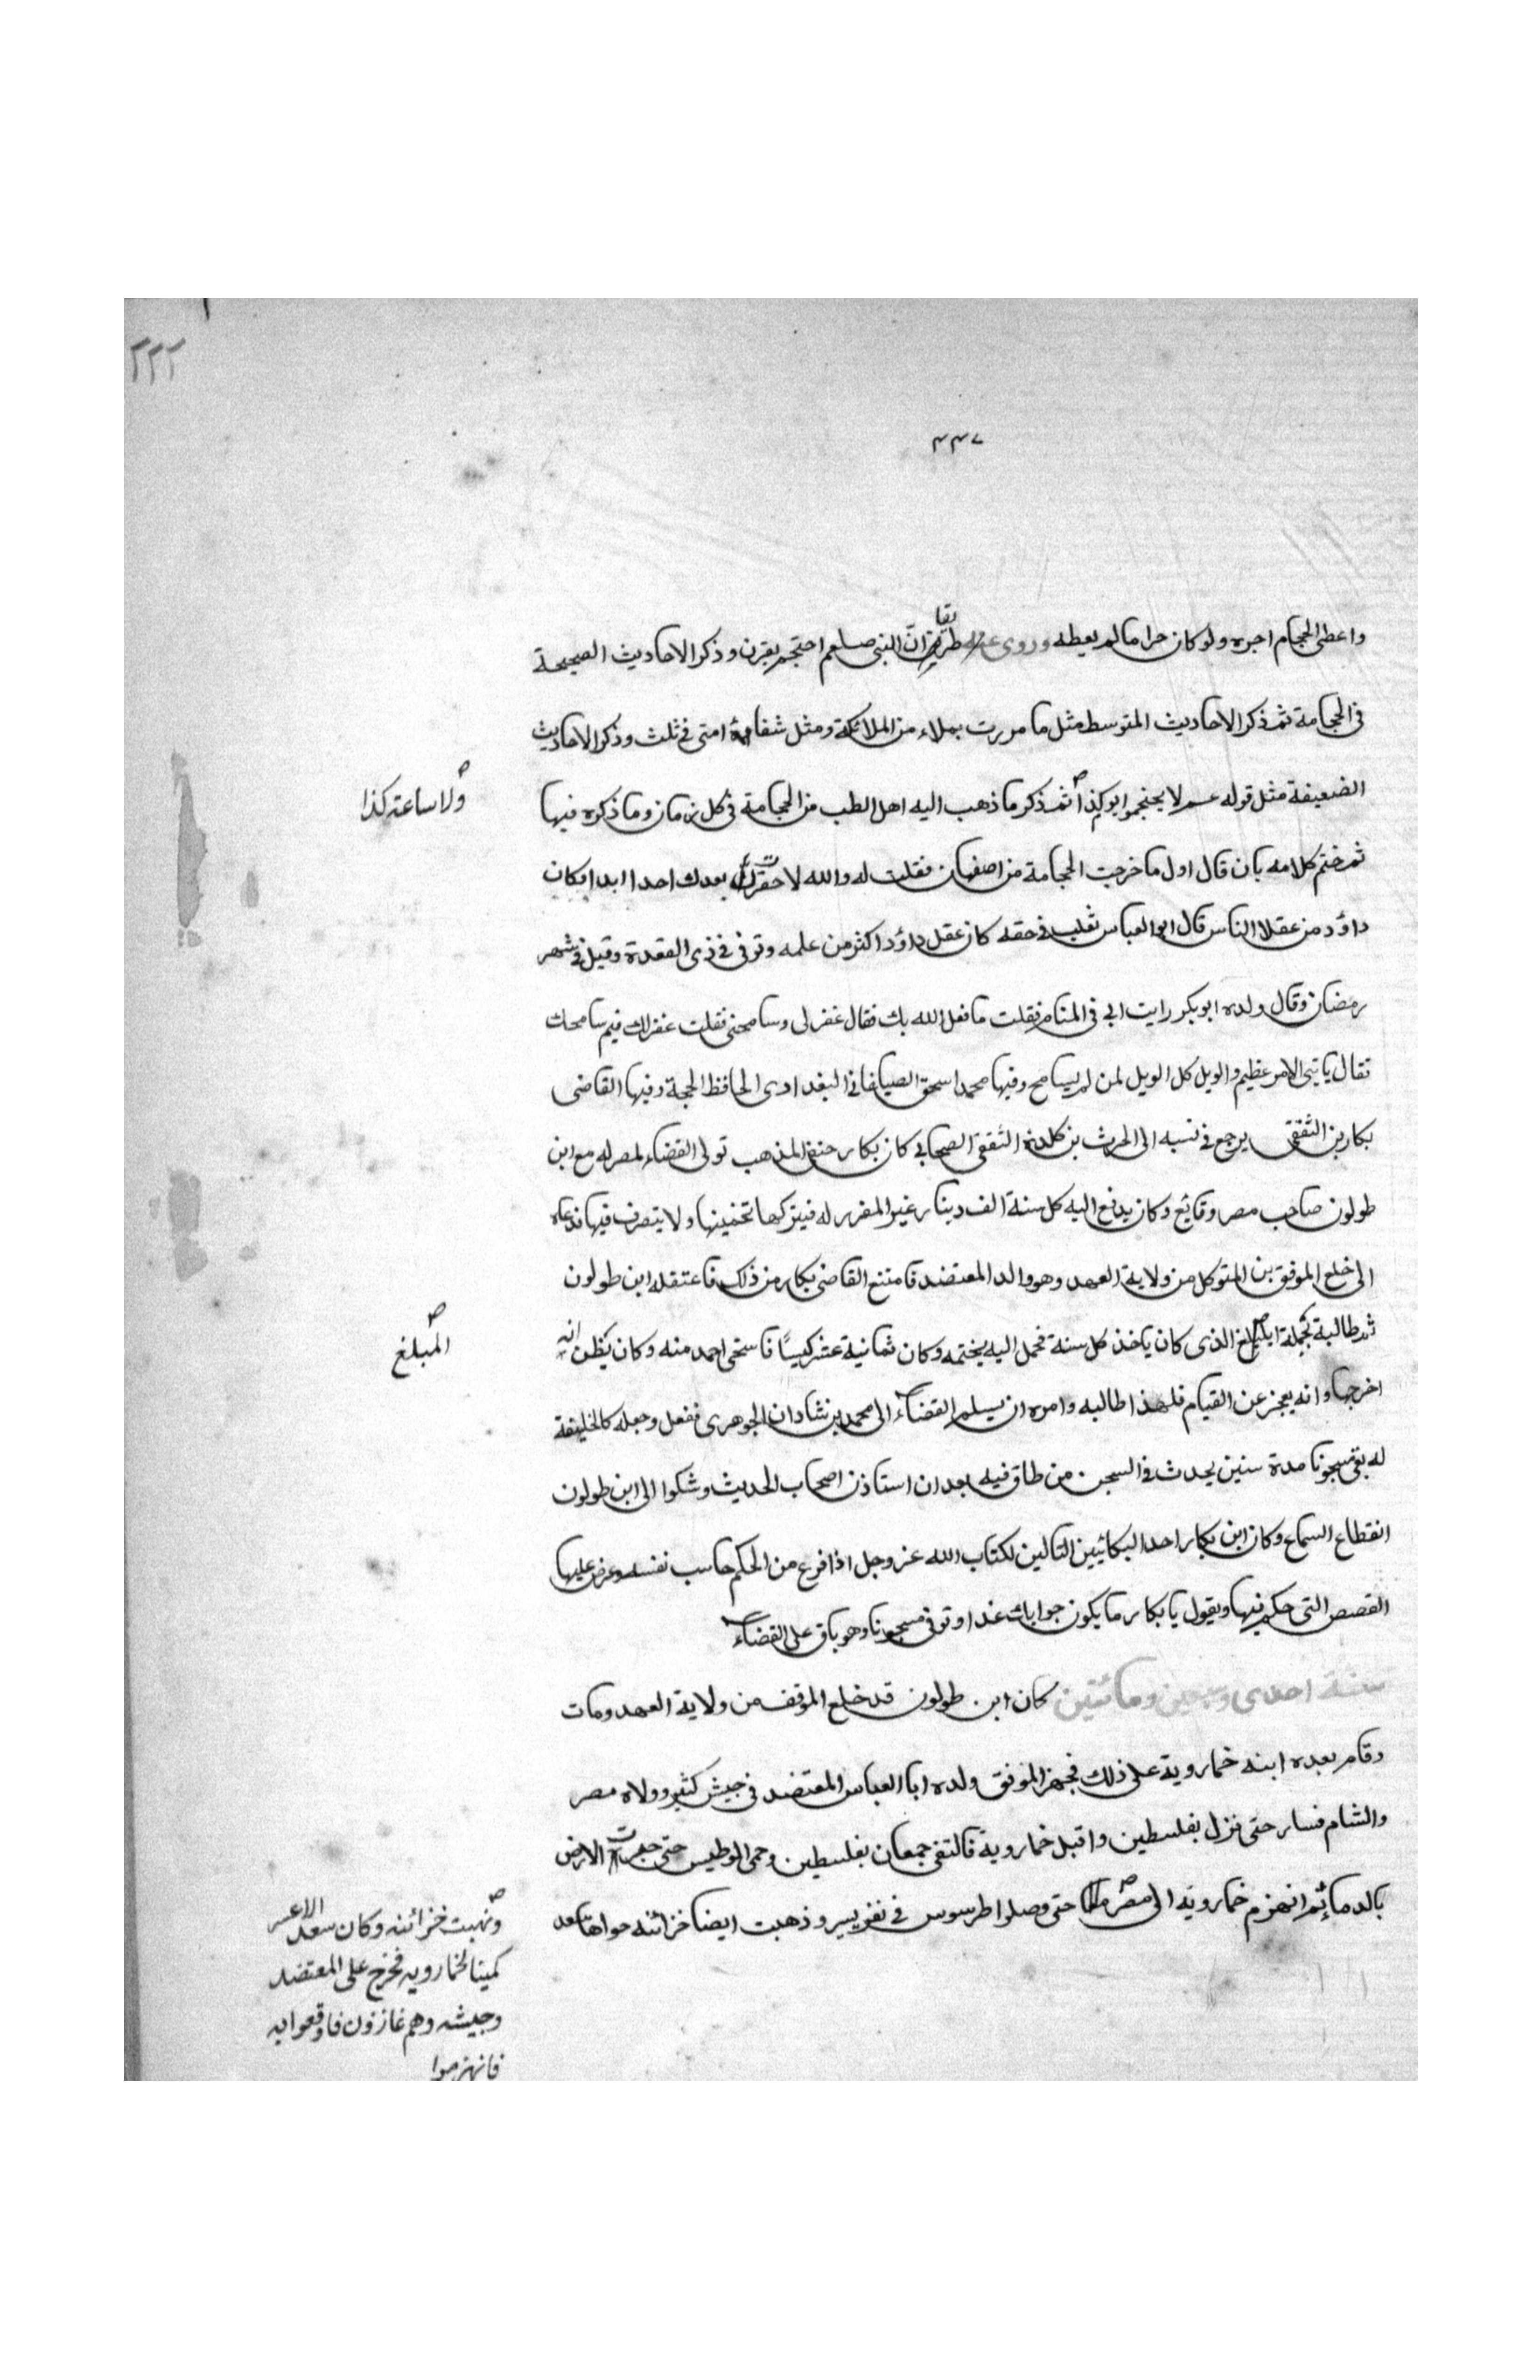 ٢٢٢
٤٤٧
واعطى الحجام اجره ولو كان حراما لم يعطه وروى طريقا ان النبى صلعم احتجم بقرن وذكر الاحاديث الصحيحة
فى الحجامة ثم ذكر الاحاديث المتوسط مثل ما مررت بملاء من الملائكة ومثل شفا امتى فى ثلث وذكر الاحاديث
الضعيفة مثل قوله عـم لا يحتجموا يوم كذا ثم ذكر ما ذهب اليه اهل الطب من الحجامة فى كل زمان وما ذكره فيها
ولا ساعة كذا
ثم ختم كلامه بان قال اول ما خرجت الحجامة من اصفهان فقلت له والله لا حقرت بعدك احدا ابدا وكان
داؤد من عقلا الناس قال ابو العباس ثعلب فى حقه كان عقل داؤد اكثر من علمه وتوفى فى ذى القعدة وقيل فى شهر
رمضان وقال ولده ابو بكر رايت ابى فى المنام فقلت ما فعل الله بك فقال غفر لى وسامحنى فقلت غفر لك فيم سامحك
فقال يا بنى الامر عظيم والويل كل الويل لمن لم يسامح وفيها محمد اسحق البغدادى الحافظ الحجة وفيها القاضى
بكار بن الثقفى يرجع فى نسبه الى الحرث بن كلدة الثقفى الصحابى كان بكار حنفى المذهب تولى القضاء لمصر له مع ابن
طولون صاحب مصر وقائع وكان يدفع اليه كل سنة الف دينار غير المقرر له فيتركها بختمها ولا يتصرف فيها فدعاه
الى خلع الموفق بن المتوكل من ولاية العهد وهو والد المعتضد فامتنع القاضى بكار من ذلك فاعتقله ابن طولون
ثم طالبة بجملة المبلغ الذى كان ياخذ كل سنة فحمل اليه بختمه وكان ثمانية عشر كيسًا فاستحى احمد منه وكان يظن انه
المبلغ
اخرجها وانه يعجز عن القيام فلهذا طالبه وامره ان يسلم القضاء الى محمد بن شادان الجوهرى ففعل وجعله كالخليفة
له بقى مسجونا مدة سنين يحدث فى السجن من طاق فيه بعد ان استاذن اصحاب الحديث وشكوا الى ابن طولون
انقطاع السماع وكان ابن بكار احد البكائيين التالين لكتاب الله عز وجل اذا فرغ من الحكم حاسب نفسه وعرض عليها
القصص التى حكم فيها ويقول يا بكار ما يكون جوابك غدا وتوفى مسجونا وهو باق على القضاء
سنة احدى وسبعين ومائتين كان ابن طولون قد خلع الموفق من ولاية العهد ومات
وقام بعده ابنه خمارويه على ذلك فجهز الموفق ولده ابا العباس المعتضد فى جيش كثير وولاه مصر
والشام فسار حتى نزل بفلسطين واقبل خمارويه فالتقى جمعان بفلسطين وحمى الوطيس حتى جرت الارض
بالدماء ثم انهزم خمارويه الى مصر حتى وصلوا طرسوس فى نفر يسير وذهبت ايضا خزائنه حواها سعد
ونهبت خزائنه وكان سعد الاعسر
كمينا لخمارويه فخرج على المعتضد
وجيشه وهم غازون فاوقعوا به
فانهزموا